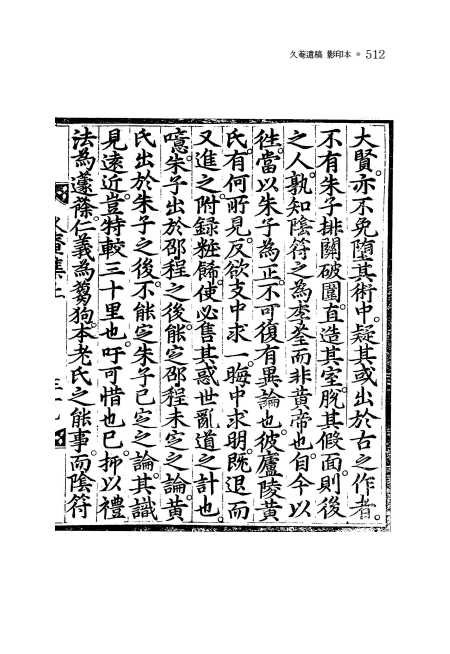 久菴遺稿 影印本 ● 512
大賢。亦不免墮其術中。疑其或出於古之作者。
不有朱子排關破圍直造其室。脫其假面。則後
之人。孰知陰符之為李荃而非黃帝也。自今以
徃。當以朱子為正。不可復有異論也。彼廬陵黃
氏。有何所見。反欲支中求一。晦中求明。既退而
又進之。附録粧餙。使必售其惑世亂道之計也。
噫。朱子出於邵程之後。能定邵程未定之論。黃
氏出於朱子之後。不能定朱子已定之論。其識
見遠近。豈特較三十里也。吁可惜也已。抑以禮
法為蘧蒢。仁義為蒭狗。本老氏之能事。而陰符